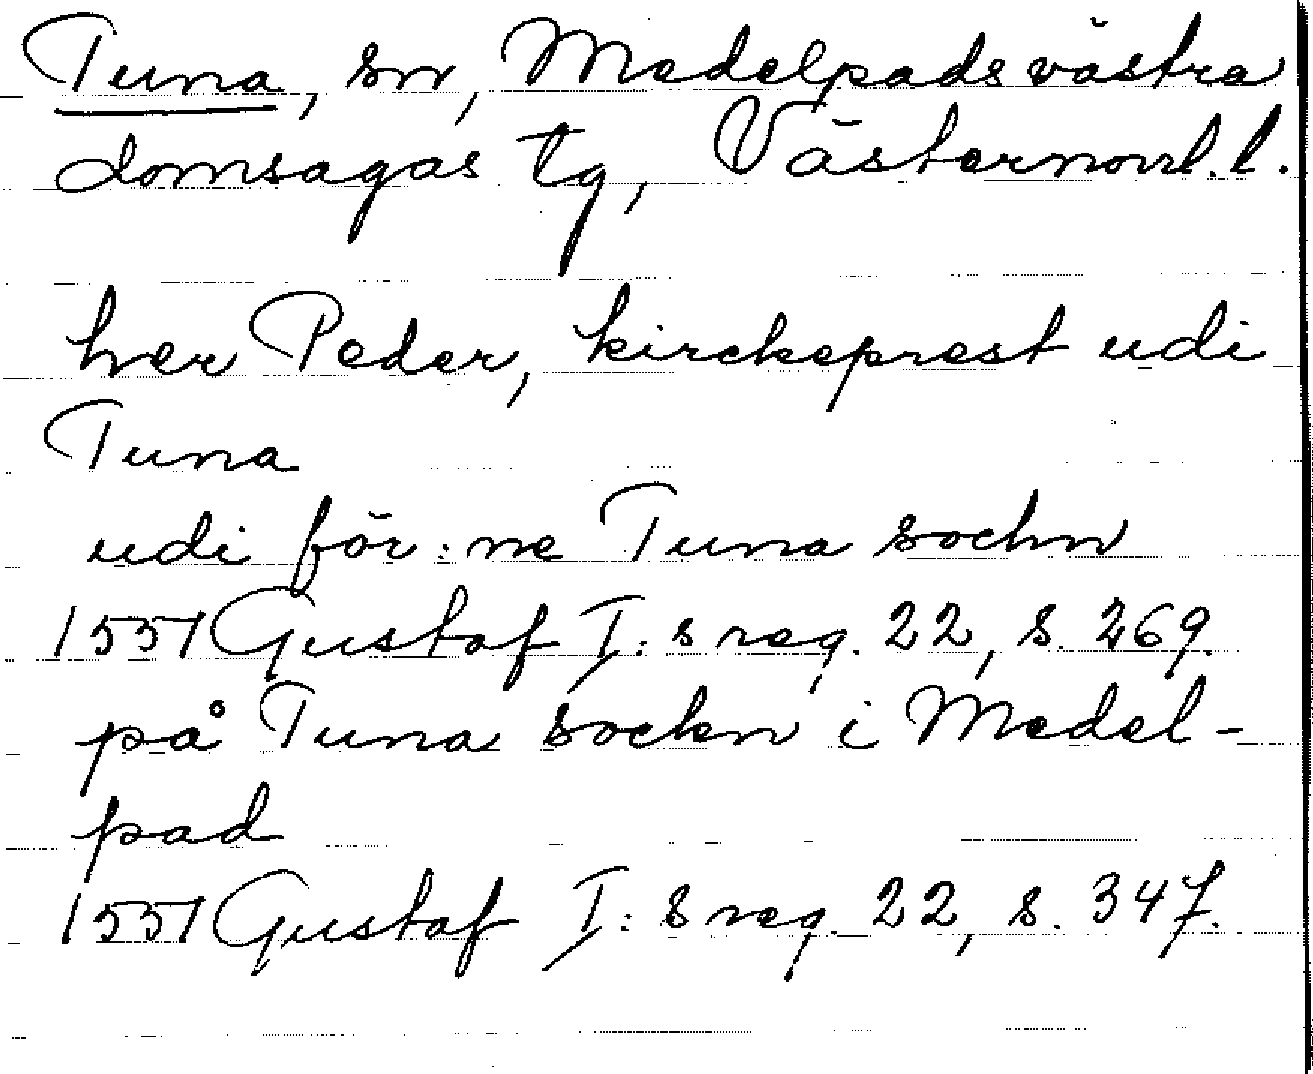 Tuna, sn, Medelpads västra
domsagas tg, Västernorrl. l.
her Peder, kirckeprest udi
Tuna
udi för:ne Tuna sochn
1551 Gustaf I:s reg. 22, s. 269.
på Tuna sockn i Medel-
pad
1551 Gustaf I:s reg. 22, s. 347.